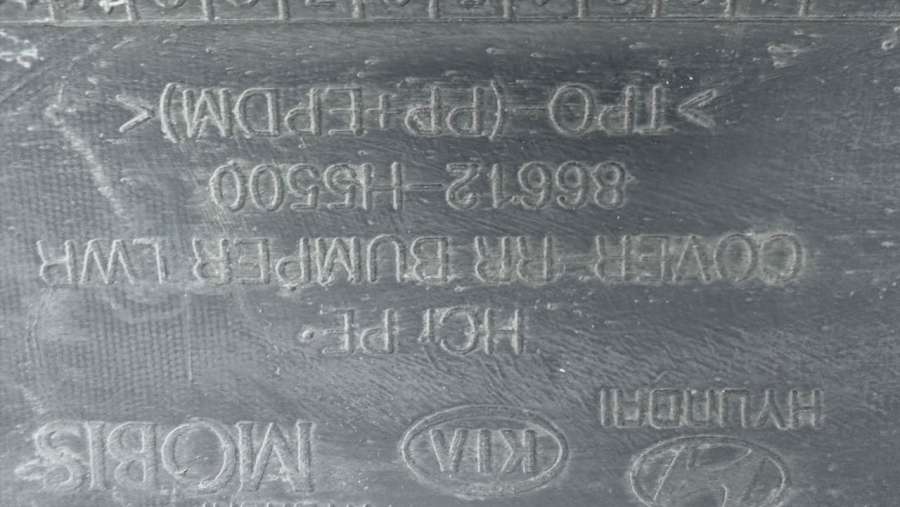 HYUNDAI
KIA
MOBIS
HCr PE.
COVER-RR BUMPER LWR
86612-H5500
>TPO-(PP+EPDM)<